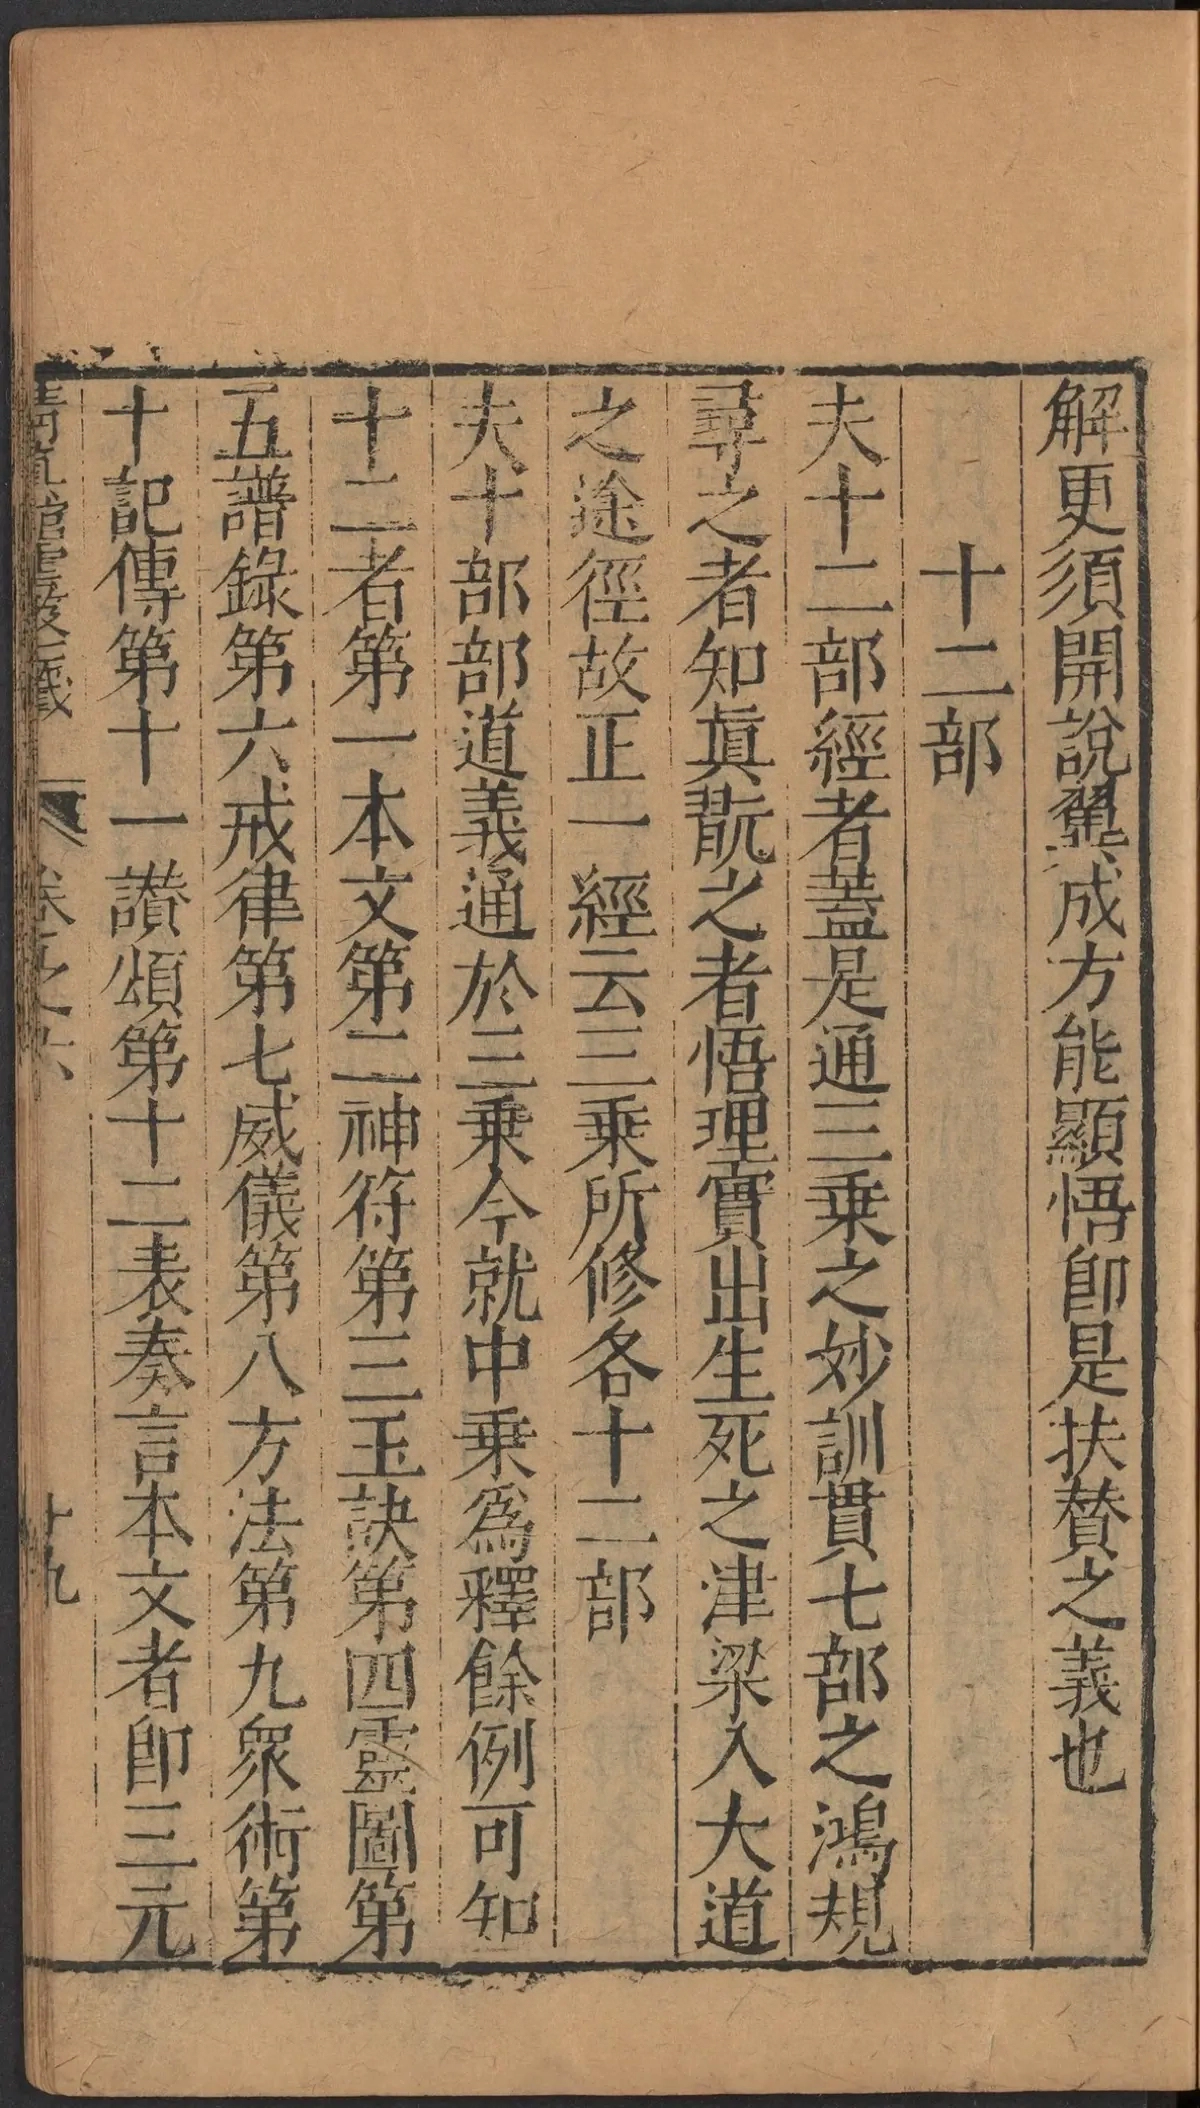 解更須開說冀成方能顯悟卽是扶賛之義也
十二部
夫十二部經者蓋是通三乗之妙訓貫七部之鴻規
尋之者知眞翫之者悟理實出生死之津梁入大道
之途徑故正一經云三乗所修各十二部
夫十部部道義通於三乗今就中乗爲釋餘例可知
十二者第一本文第二神符第三玉訣第四靈圖第
五譜錄第六戒律第七威儀第八方法第九衆術第
十記傳第十一讃頌第十二表奏言本文者卽三元
清真館雲笈七籤 卷之六 十九